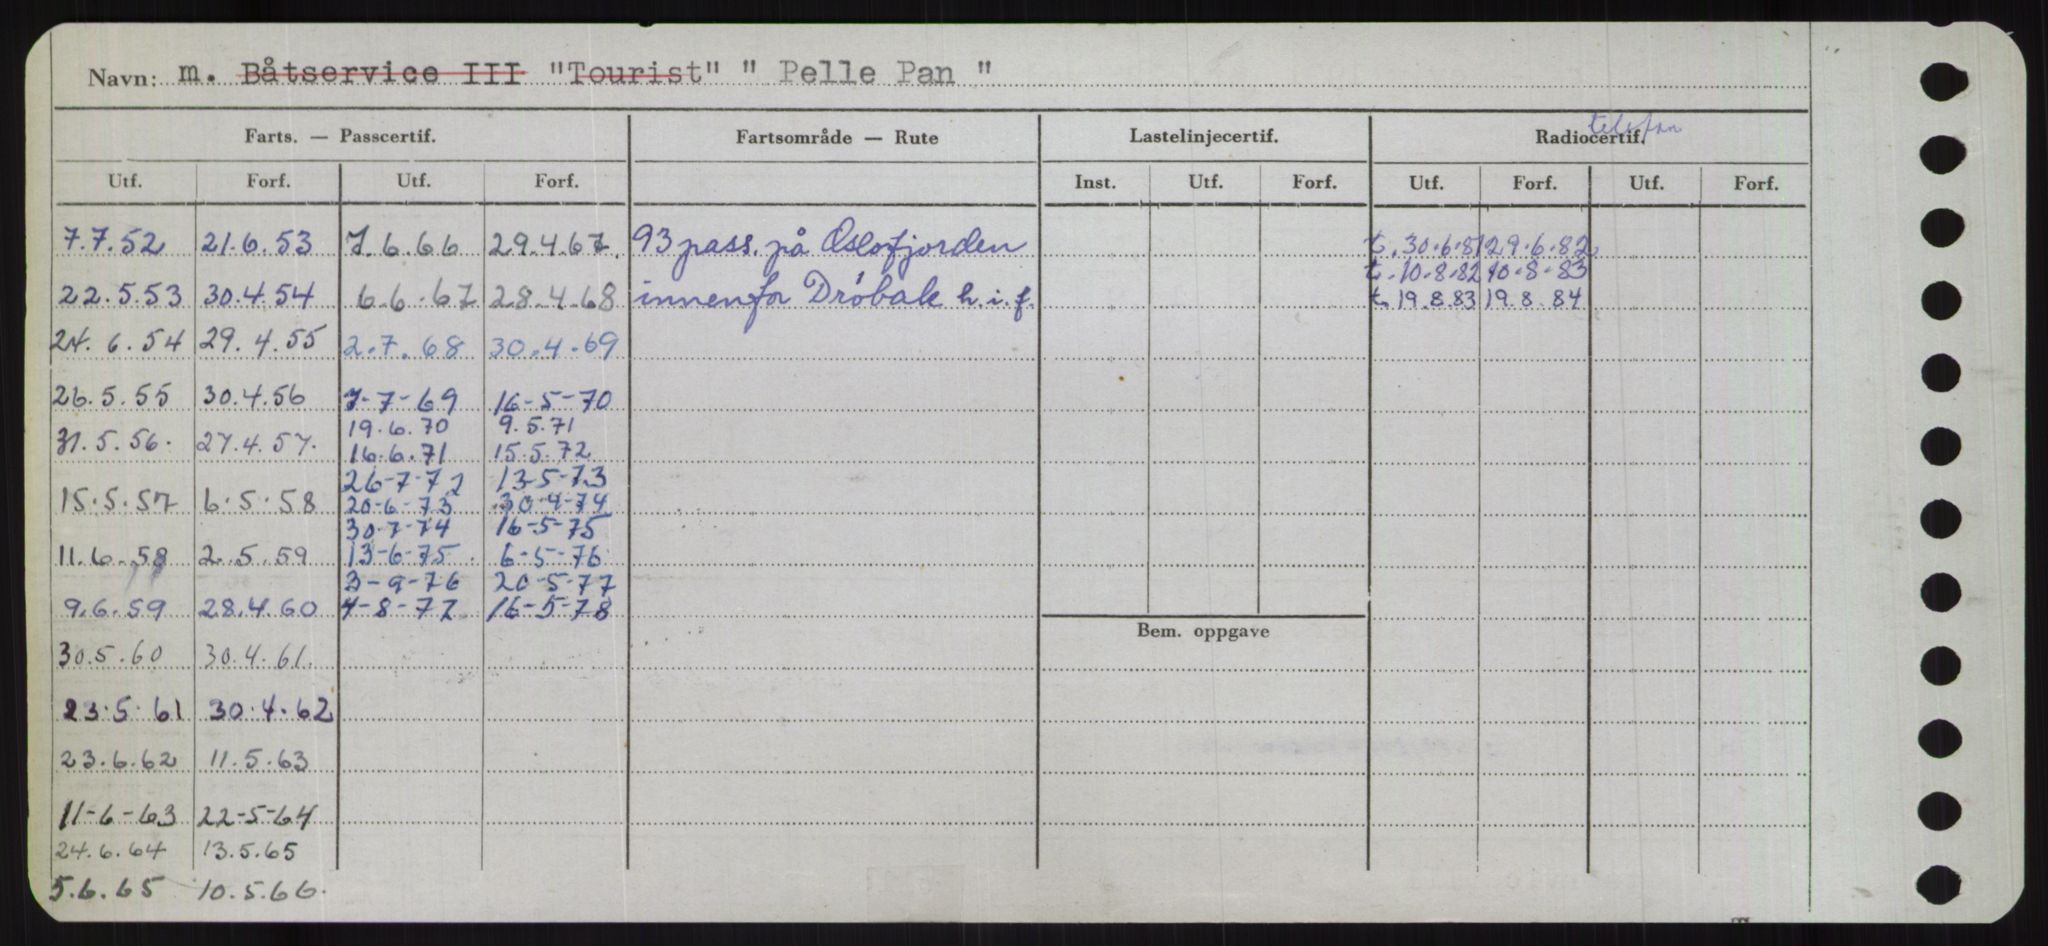 Navn: m. Båtservice III "Tourist" " Pelle Pan "
telefon
Farts. — Passcertif. Fartsområde — Rute Lastelinjecertif. Radiocertif.
Utf. Forf. Utf. Forf. Inst. Utf. Forf. Utf. Forf. Utf. Forf.
7.7.52 21.6.53 7.6.66 29.4.67. 93 pass. på Oslofjorden t. 30-6-81 29-6-82
t. 10-8-82 10-8-83
22.5.53 30.4.54 6.6.67 28.4.68 innenfor Drøbak h.i.f. t. 19.8.83 19.8.84
24.6.54 29.4.55 2.7.68 30.4.69
26.5.55 30.4.56 7-7-69 16-5-70
19.6.70 9.5.71
31.5.56. 27.4.57. 16.6.71 15.5.72
26-7-72 13-5-73
15.5.57 6.5.58 20-6-73 30-4-74
30-7-74 16-5-75
11.6.58 2.5.59 13-6-75. 6-5-76
3-9-76 20-5-77
9.6.59 28.4.60 4-8-77 16-5-78
Bem. oppgave
30.5.60 30.4.61.
23.5.61 30.4.62
23.6.62 11.5.63
11-6-63 22-5-64
24.6.64 13.5.65
5.6.65 10.5.66.